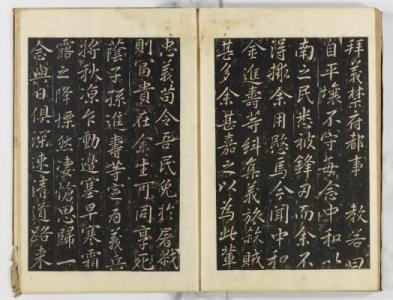 拜義禁府都事 教若曰
自平壤不守每念中和以
南之民悉被鋒刃而余不
得拯余用愍焉今聞中和
金進壽等糾集義旅賊
甚多余甚嘉之以為此輩
忠義苟令吾民免於屠戮
則富貴在余生可同享死
蔭子孫進壽等定為義兵
將秋涼乍動邊塞早寒霜
露之降慄然悽愴思歸一
念與日俱深速清道路来